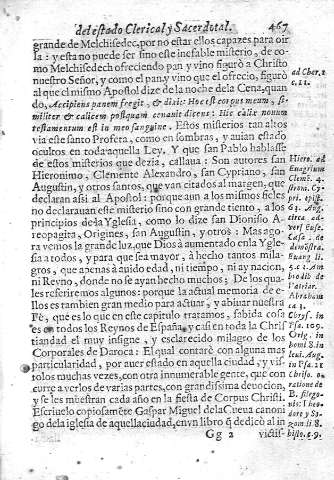 del estado Clerical, y Sacerdotal. 467
grande de Melchisedec, por no estar ellos capazes para oir
la: y esta no puede ser sino este inefable misterio, de co
mo Melchisedech ofreciendo pan y vino figurò a Christo
nuestro Señor, y como el pan, y vino que el ofrecio, figurò
al que el mismo Apostol dize de la noche de la Cena, quan
do, Accipiens panem fregit, & dixit: Hoc est corpus meum, si-
militer & calicem postquam cenauit dicens: Hic calix nouum
testamentum est in meo sanguine. Estos misterios tan altos
via este santo Profeta, como en sombras, y auian estado
ocultos en toda aquella Ley. Y que san Pablo hablasse
de estos misterios que dezia, callaua: Son autores san
Hieronimo, Clemente Alexandro, san Cypriano, san
Augustin, y otros santos, que van citados al margen, que
declaran assi al Apostol: porque aun a los mismos fieles
no declarauan este misterio sino con grande tiento, a los
principios de la Yglesia, como lo dize san Dionisio A-
reopagita, Origines, san Augustin, y otros: Mas ago-
ra vemos la grande luz, que Dios à aumentado en la Ygle
sia a todos, y para que sea mayor, à hecho tantos mila-
gros, que apenas à auido edad, ni tiempo, ni ay nacion,
ni Reyno, donde no se ayan hecho muchos: De los qua-
les referiremos algunos: porque la actual memoria de e-
llos es tambien gran medio para actuar, y abiuar nuestra
Fè, que es lo que en este capitulo tratamos, sabida cosa
es en todos los Reynos de España, y casi en toda la Chris
tiandad el muy insigne, y esclarecido milagro de los
Corporales de Daroca: El qual contarè con alguna mas
particularidad, por auer estado en aquella ciudad, y vis
tolos muchas vezes, con otra innumerable gente, que con
curre a verlos de varias partes, con grandissima deuocion,
y se les muestran cada año en la fiesta de Corpus Christi.
Escriuelo copiosamẽte Gaspar Miguel de la Cueua canoni
go de la iglesia de aquella ciudad, en vn libro q̃ dedicò al in
Gg 2 victis-
ad Cher. 2
c. 11.
Hiero. ad
Euagrium
Clem. 4.
strom. Cy-
pri. epist.
63. Aug.
circa ad-
Euang li.
5. c. 3. Am
brosiº de
Patriar.
Abraham
c. 3.
Psa. 109.
Orig. in
homi. 8. in
leuit. Aug.
in Psa. 21
Chriso. o-
ratione de
nius: Theo
doret y So-
zom li 8.
histo. c. 9.